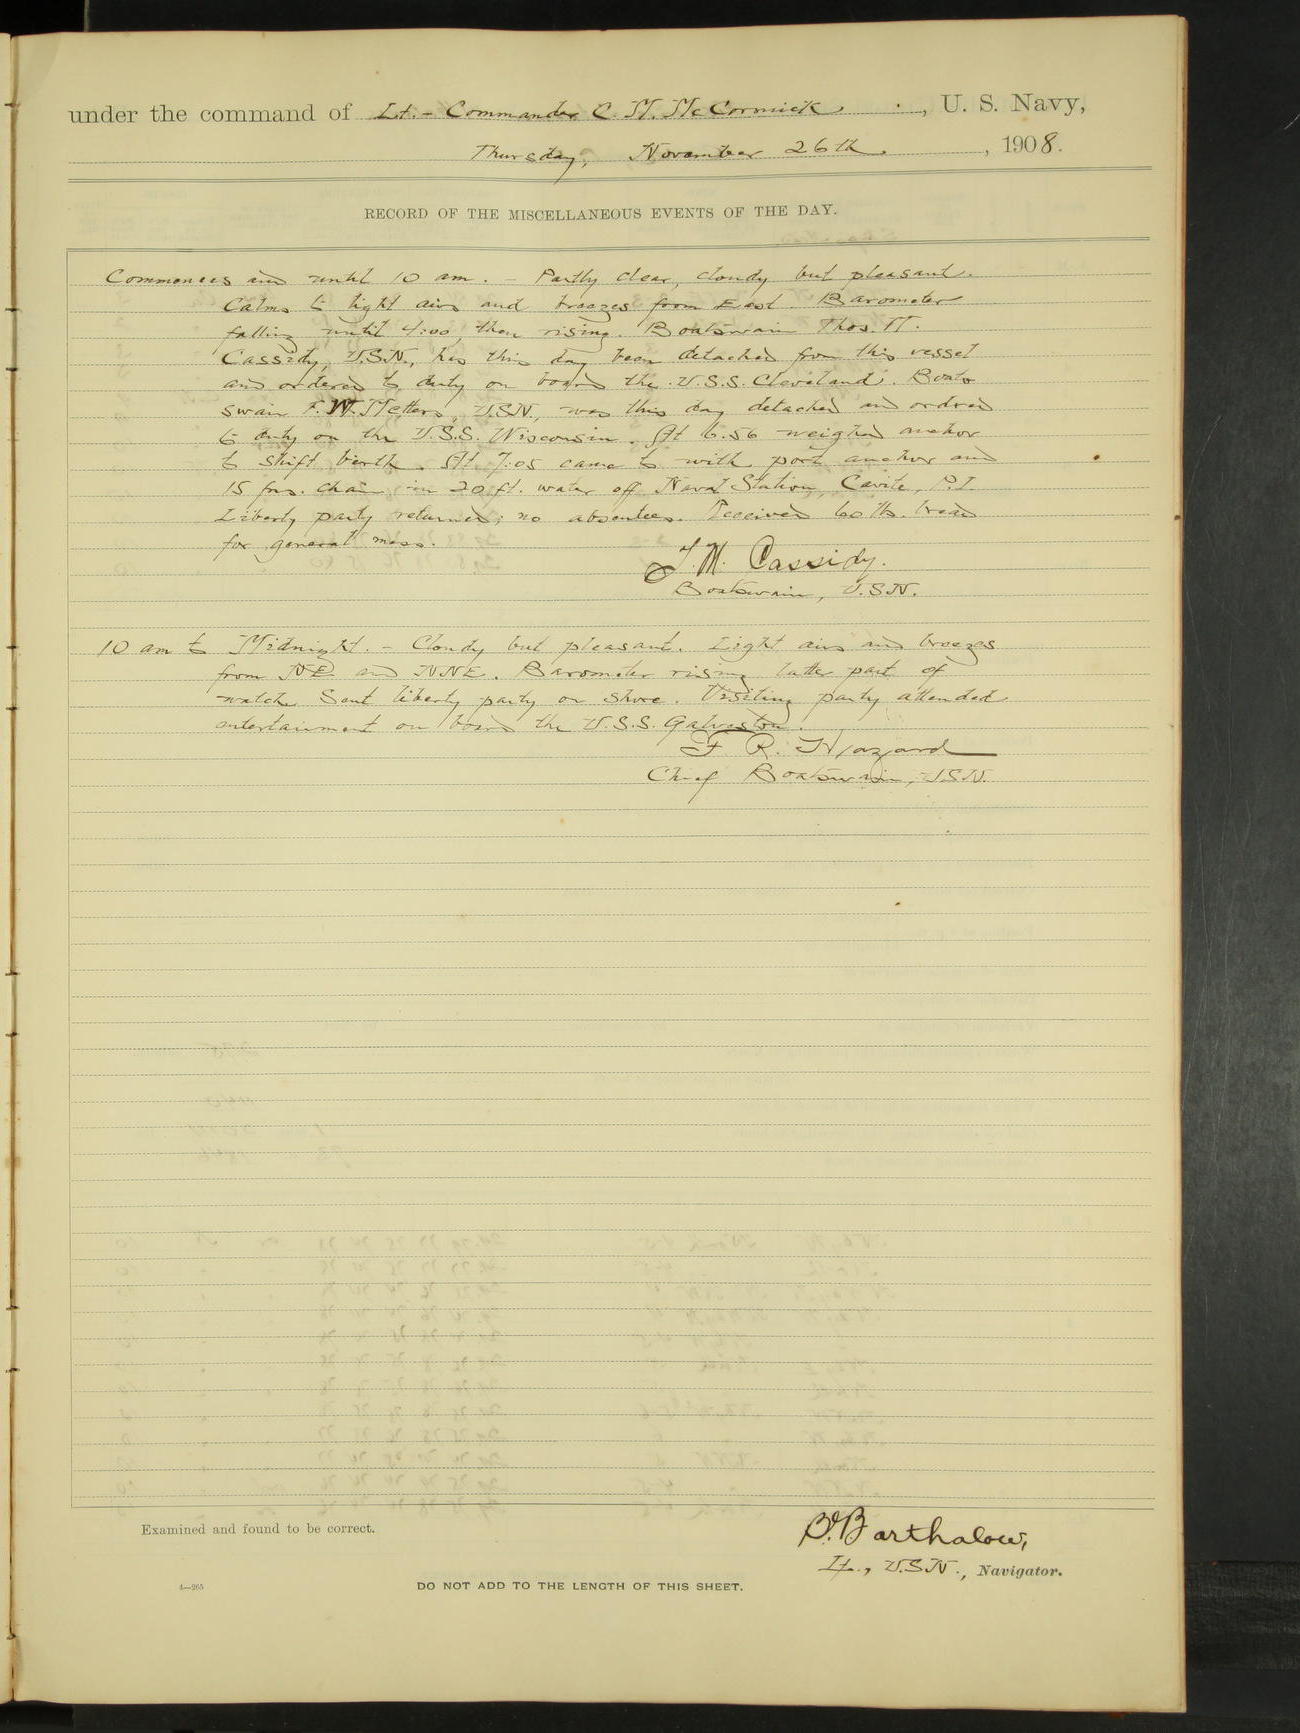 under the command of Lt.- Commander C. M. McCormick , U. S. Navy,
Thursday, November 26th , 1908.
RECORD OF THE MISCELLANEOUS EVENTS OF THE DAY.
Commences and until 10 am. - Partly clear, cloudy but pleasant.
Calms to light airs and breezes from East. Barometer
falling until 4:00, then rising. Boatswain Thos. M.
Cassidy, U.S.N., has this day been detached from this vessel
and ordered to duty on board the U.S.S. Cleveland. Boat-
swain F. W. Metters, U.S.N., was this day detached and ordered
to duty on the U.S.S. Wisconsin. At 6.56 weighed anchor
to shift berth. At 7:05 came to with port anchor and
15 fms. chain in 20 ft. water off Naval Station, Cavite, P.I.
Liberty party returned; no absentees. Received 60 lbs. bread
for general mess.
T. M. Cassidy.
Boatswain, U.S.N.
10 am to Midnight. - Cloudy but pleasant. Light airs and breezes
from NE and NNE. Barometer rising latter part of
watch. Sent liberty party on shore. Visiting party attended
entertainment on board the U.S.S. Galveston.
F. R. Hazard
Chief Boatswain, U.S.N.
Examined and found to be correct.
B. Barthalow,
Lt., U.S.N., Navigator.
4—265
DO NOT ADD TO THE LENGTH OF THIS SHEET.